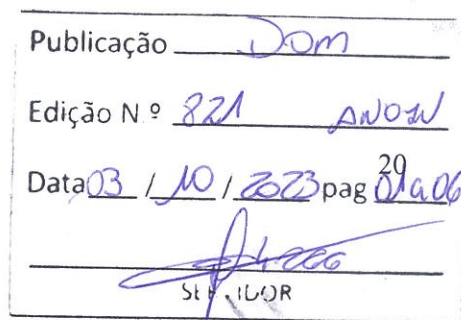 Publicação DOM
Edição N.º 821 ANO IV
Data 03 / 10 / 2023 pag 01 a 06
20
SERVIDOR